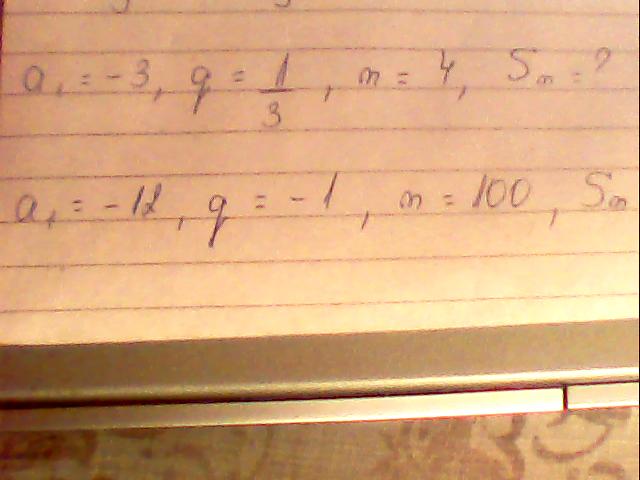 a₁ = -3, q = 1/3, n = 4, Sn = ?
a₁ = -12, q = -1, n = 100, Sn